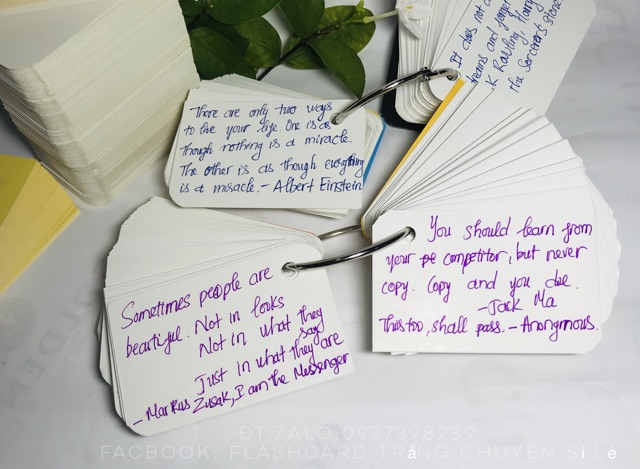 It does not d
dreams and forget
.K Rowling, Harry
the Sorcerer's Stone
There are only two ways
to live your life. One is as
though nothing is a miracle.
The other is as though everything
is a miracle. - Albert Einstein
You should learn from
your competitor, but never
copy. Copy and you die.
- Jack Ma
This too, shall pass. - Anonymous.
Sometimes people are
beautiful. Not in looks
Not in what they
say
Just in what they are
- Markus Zusak, I am the Messenger
ĐT,ZALO:0977398239
FACBOOK: FLASHCARD TRẮNG CHUYÊN SỈ LẺ